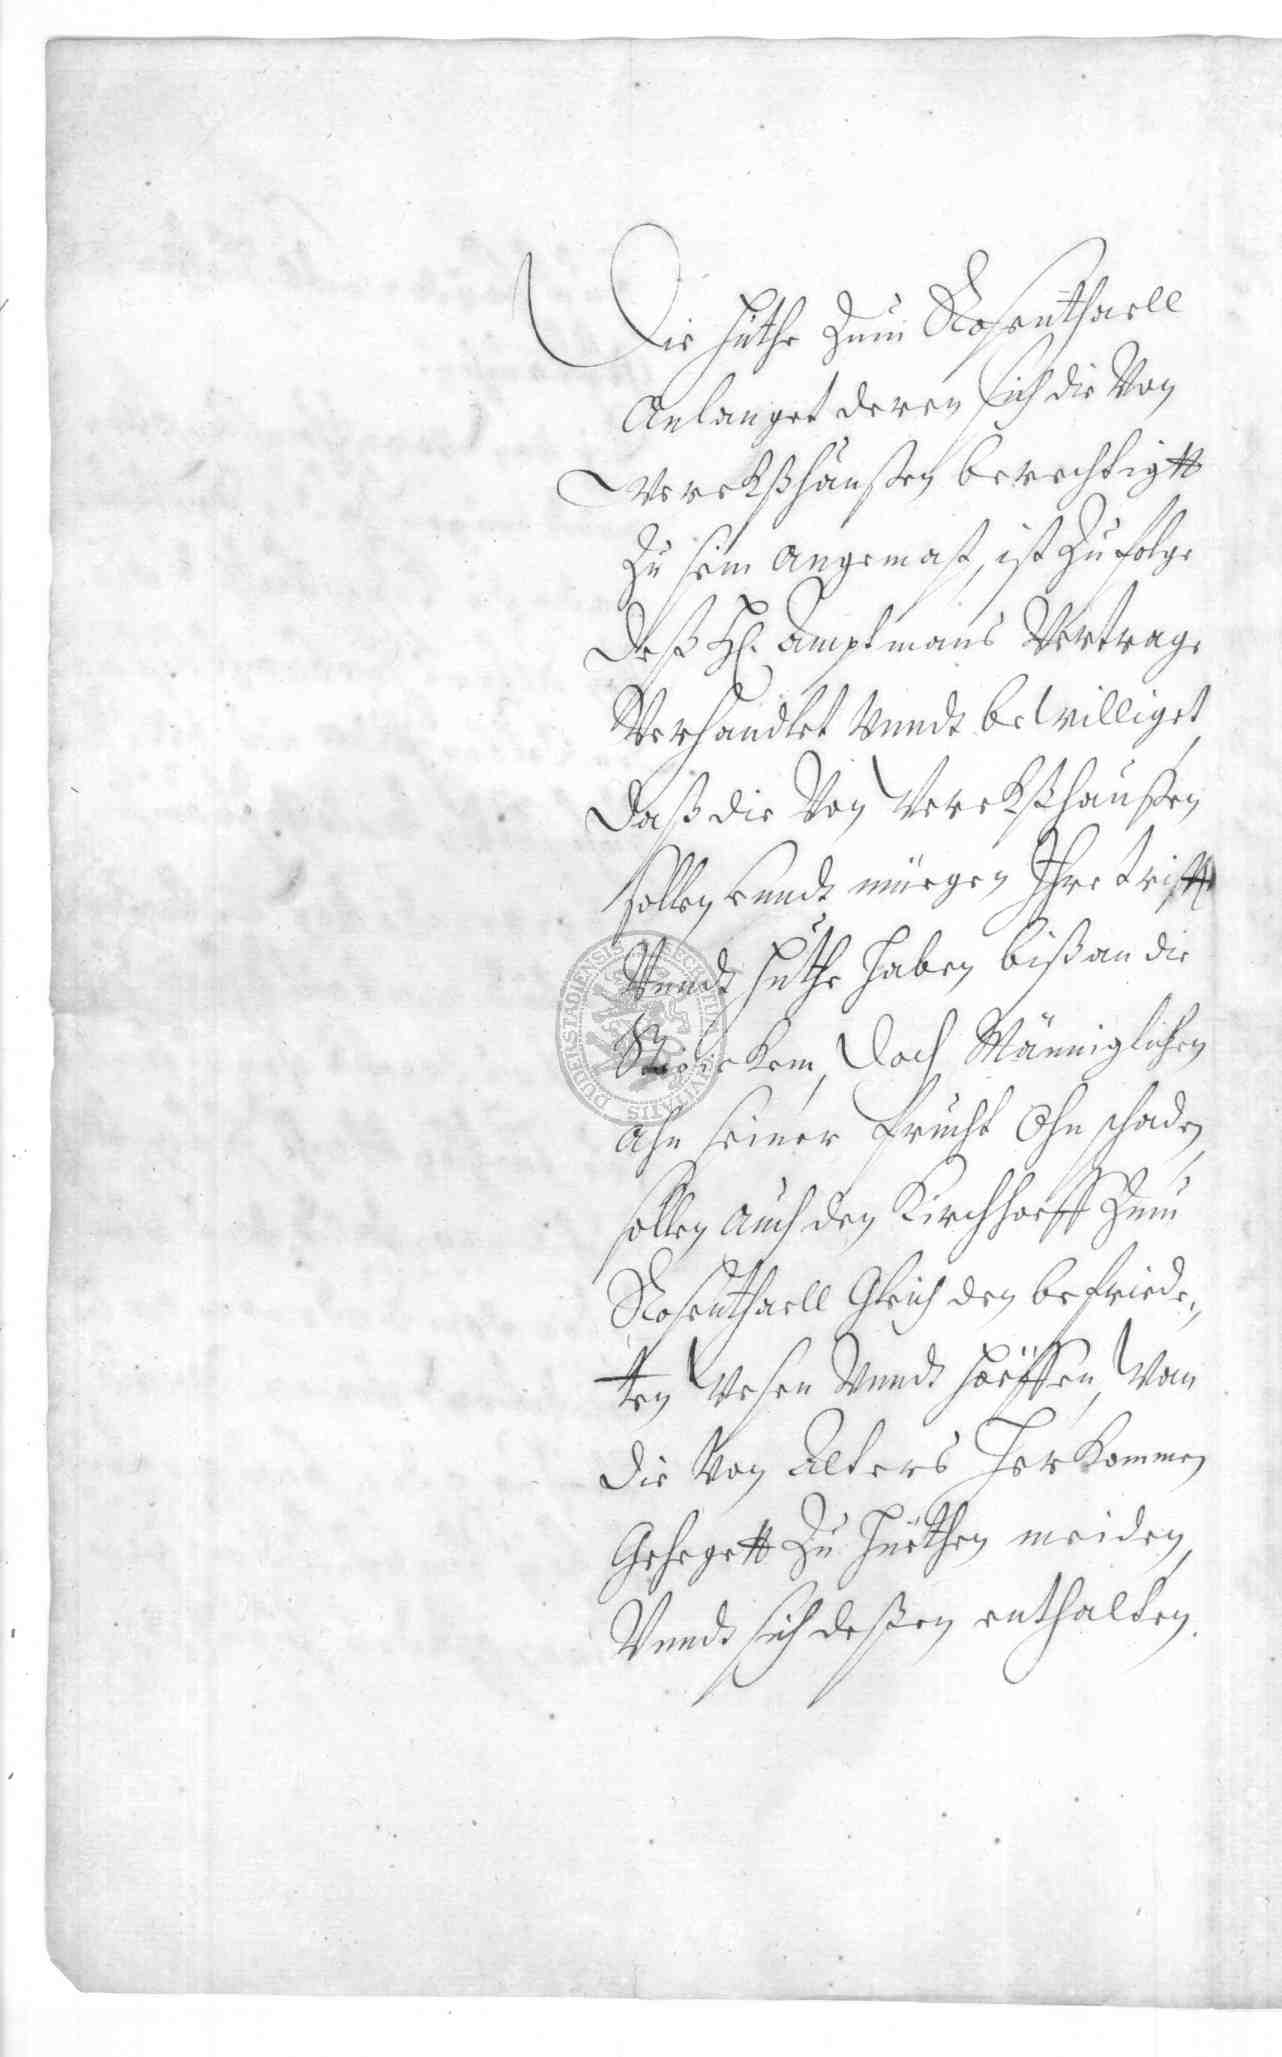 Die Huthe Zum Rosenthaell
Anlanget deren sich die Von
Wereckßhaußen berechtigtt
Zu sein angemast, ist Zufolge
deß H. Amptmans Vertrage
Verhandlet Vundt bewilliget,
daß die Von Wereckßhaußen
sollen vundt müegen Ihre trifft
Vundt Huthe haben biß an die
doch Männiglichen
ahn seiner frucht Ohn schaden,
sollen auch den Kirchhoeff Zum
Rosenthaell Gleich den befriede,,
ten Wesen Vundt Höeffen, Wan
die Von Alters Herkommen
Gehegett Zu Hüethen meiden,
Vundt sich deßen enthalten.
SECRETUM CIVITATIS DUDERSTADIENSIS